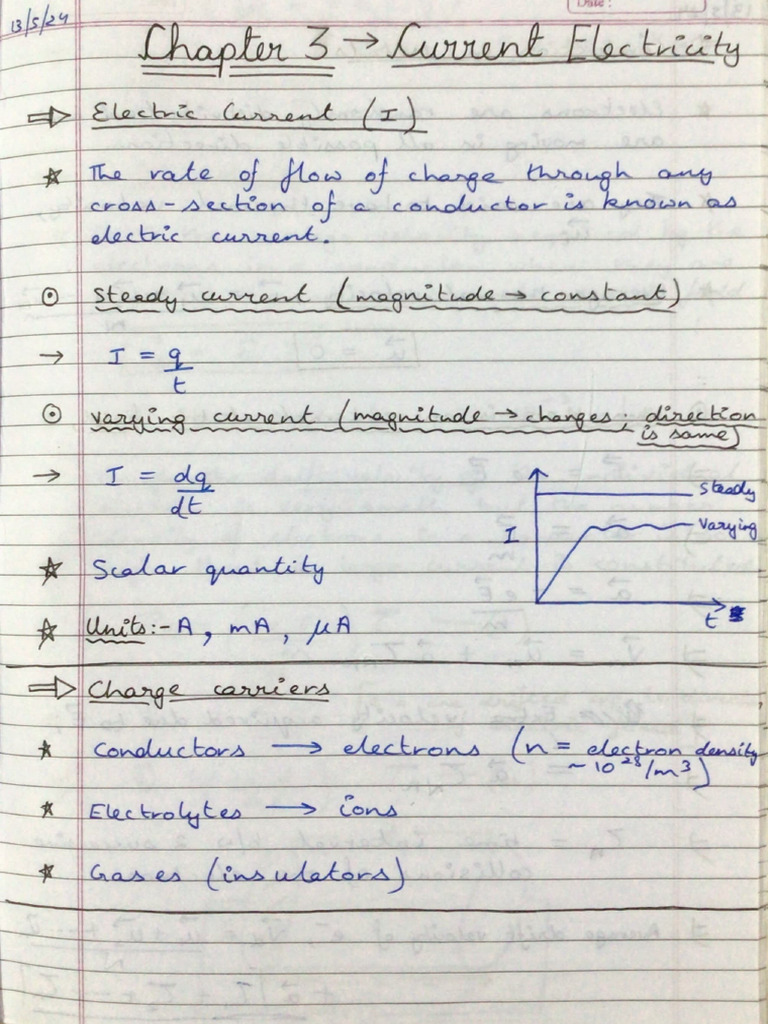 13/5/24
Date:
Chapter 3 → Current Electricity
⇒ Electric Current (I)
★ The rate of flow of charge through any
cross-section of a conductor is known as
electric current.
⊙ Steady current (magnitude → constant)
→ I = q/t
⊙ varying current (magnitude → changes ; direction
is same)
→ I = dq/dt
Steady
Varying
I
t
★ Scalar quantity
★ Units:- A, mA, μA
⇒ Charge carriers
★ Conductors → electrons (n = electron density
~10²⁸/m³)
★ Electrolytes → ions
★ Gases (insulators)